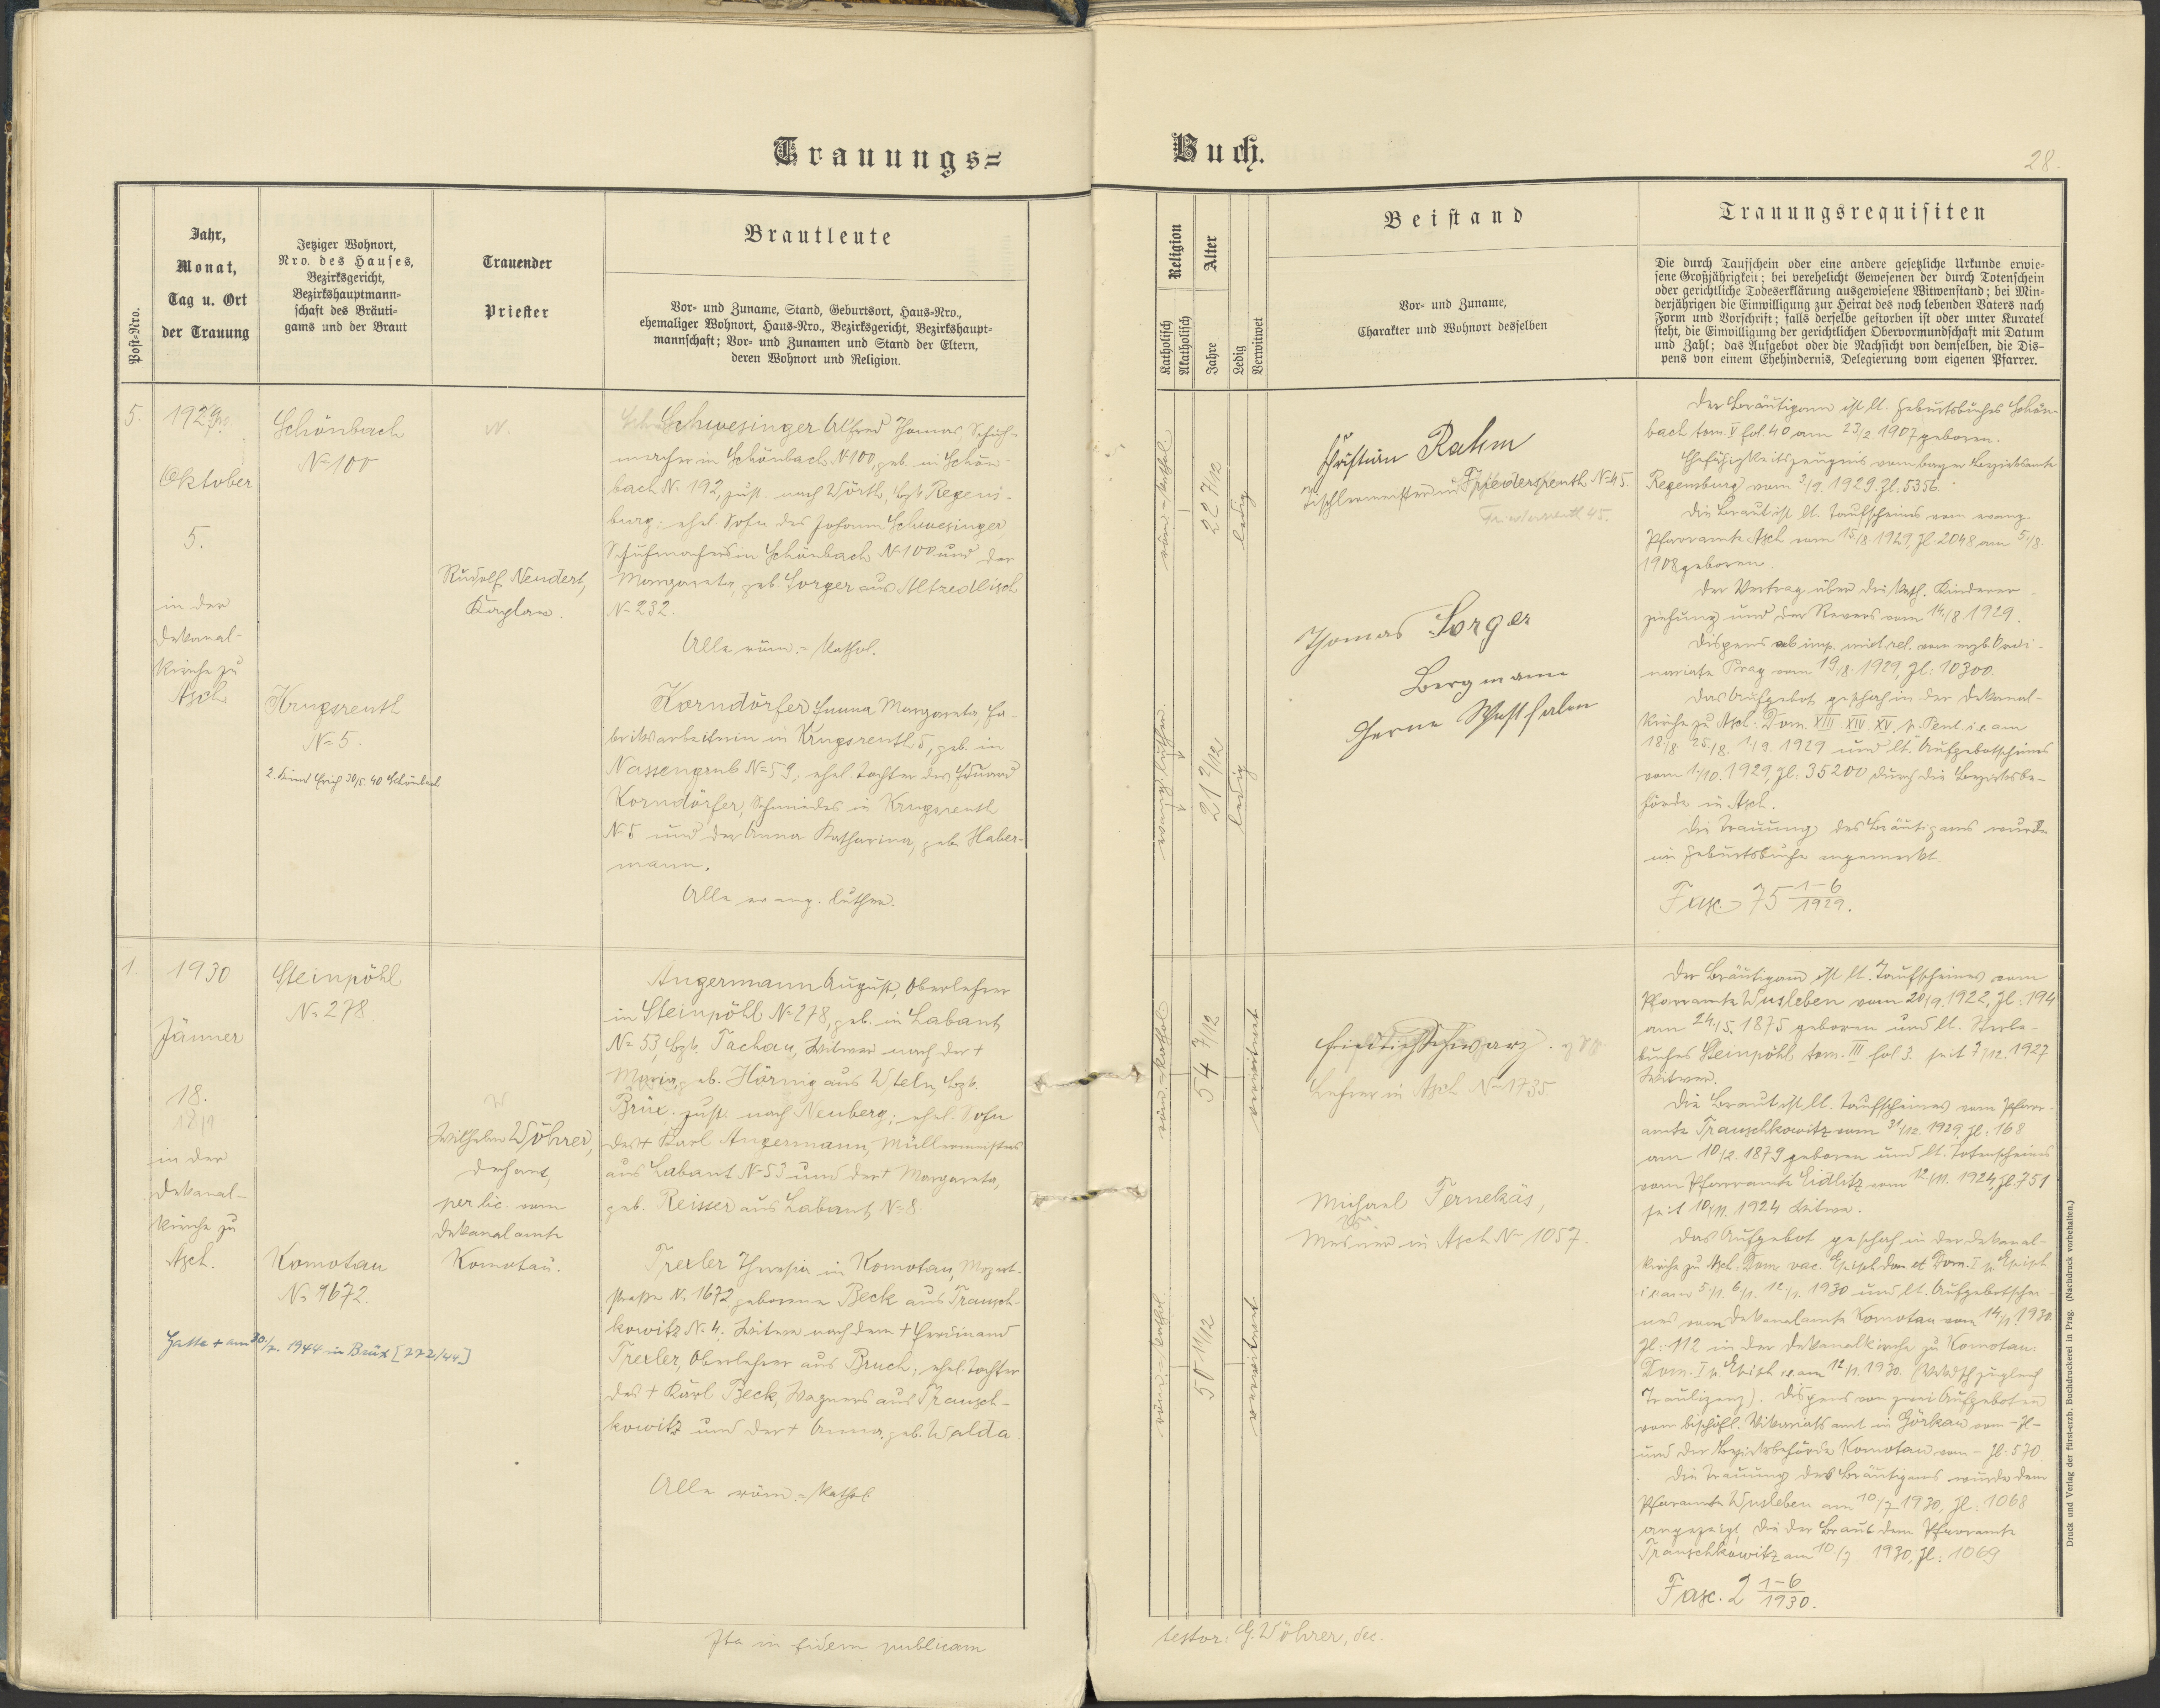 Trauungs=
Buch.
28.
Post-Nro.
Jahr,
Monat,
Tag u. Ort
der Trauung
Jetziger Wohnort,
Nro. des Hauses,
Bezirksgericht,
Bezirkshauptmann=
schaft des Bräuti=
gams und der Braut
Trauender
Priester
Brautleute
Vor= und Zuname, Stand, Geburtsort, Haus=Nro.,
ehemaliger Wohnort, Haus=Nro., Bezirksgericht, Bezirkshaupt=
mannschaft; Vor= und Zunamen und Stand der Eltern,
deren Wohnort und Religion.
Religion
Katholisch
Akatholisch
Alter
Jahre
Ledig
Verwitwet
Beistand
Vor= und Zuname,
Charakter und Wohnort desselben
Trauungsrequisiten
Die durch Taufschein oder eine andere gesetzliche Urkunde erwie=
sene Großjährigkeit; bei verehelicht Gewesenen der durch Totenschein
oder gerichtliche Todeserklärung ausgewiesene Witwenstand; bei Min=
derjährigen die Einwilligung zur Heirat des noch lebenden Vaters nach
Form und Vorschrift; falls derselbe gestorben ist oder unter Kuratel
steht, die Einwilligung der gerichtlichen Obervormundschaft mit Datum
und Zahl; das Aufgebot oder die Nachsicht von demselben, die Dis=
pens von einem Ehehindernis, Delegierung vom eigenen Pfarrer.
5.
1929
Oktober
5.
in der
Dekanal-
kirche zu
Asch
Schönbach
N= 100
Krugsreuth
N= 5.
2. Kind Erich 30/5. 40 Schönbach
Rudolf Neudert,
Kaplan.
Schwesinger Alfred Thomas, Schuh-
macher in Schönbach N=100, geb. in Schön-
bach N= 192, zust. nach Wörth, Bzk. Regens-
burg; ehel. Sohn des Johann Schwesinger,
Schuhmachers in Schönbach N=100 und der
Margareta, geb. Sorger aus Altzedlisch
N= 232.
Alle röm.=kathol.
Korndörfer Emma Margareta, Fa-
briksarbeiterin in Krugsreuth 5, geb. in
Nassengrub N= 59; ehel. Tochter des Eduard
Korndörfer, Schmiedes in Krugsreuth
N=5 und der Anna Katharina, geb. Haber-
mann.
Alle evang. luther.
röm.=kathol.
22 7/12
ledig
evang. luther.
21 2/12
ledig
Christian Rahm
Tischlermeister in Friedersreuth N=45.
Friedersreuth 45.
Thomas Sorger
Bergmann
Herne Westfalen
Der Bräutigam ist lt. Geburtsbuches Schön-
bach tom. V fol. 40 am 23/2. 1907 geboren.
Ehefähigkeitszeugnis vom bayer. Bezirksamte
Regensburg vom 3/9. 1929. Zl. 5356.
Die Braut ist lt. Taufscheines vom evang.
Pfarramte Asch vom 15/8 1929, Zl. 2048 am 5/8.
1908 geboren.
Der Vertrag über die kath. Kinderer-
ziehung und der Revers vom 14/8 1929.
Dispens ab imp. mixt. rel. vom erzb. Ordi-
nariate Prag vom 19/8. 1929, Zl: 10300.
Das Aufgebot geschah in der Dekanal-
kirche zu Asch: Dom. XIII XIV. XV. p. Pent. i.e. am
18/8. 25/8. 1/9. 1929 und lt. Aufgebotscheines
vom 1/10. 1929, Zl: 35200 durch die Bezirksbe-
hörde in Asch.
Die Trauung des Bräutigams wurde
im Geburtsbuche angemerkt.
Fasc. 75 1-6/1929.
1.
1930
Jänner
18.
18/1
in der
Dekanal-
kirche zu
Asch.
Steinpöhl
N= 278.
Komotau
N= 1672.
Gatte + am 30/7. 1944 in Brüx [272/44]
Wilhelm Wöhrer,
Dechant,
per lic. vom
Dekanalamte
Komotau.
Angermann August, Oberlehrer
in Steinpöhl N= 278, geb. in Labant
N= 53, Bzk. Tachau, Witwer nach der +
Maria, geb. Hörnig aus Wteln, Bzk.
Brüx. zust. nach Neuberg; ehel. Sohn
des + Karl Angermann, Müllermeisters
aus Labant N=53 und der + Margareta,
geb. Reisser aus Labant N= 8.
Trexler Theresia in Komotau, Mozart-
straße N= 1672, geborene Beck aus Trausch-
kowitz N= 4; Witwe nach dem + Ferdinand
Trexler, Oberlehrer aus Bruch; ehel. Tochter
des + Karl Beck, Wagners aus Trausch-
kowitz und der + Anna, geb. Walda
Alle röm.=kathol.
röm.=kathol.
54 7/12
verwitwet
röm.=kathol.
50 11/12
verwitwet
Friedrich Schwarz.
Lehrer in Asch N= 1735
Michael Ternekäs,
Mesner in Asch N= 1057.
Der Bräutigam ist lt. Taufscheines vom
Pfarramte Wusleben vom 20/9. 1922, Zl: 194
am 24/5. 1875 geboren und lt. Sterbe-
buches Steinpöhl tom. III fol 3. seit 7/12. 1927
Witwer.
Die Braut ist lt. Taufscheines vom Pfarr-
amte Trauschkowitz vom 31/12. 1929, Zl: 168
am 10/2. 1879 geboren und lt. Totenscheines
vom Pfarramte Eidlitz vom 12/11. 1924, Zl. 751
seit 10/11. 1924 Witwe.
Das Aufgebot geschah in der Dekanal-
kirche zu Asch: Dom. vac. Epiph. Dom. I p. Epiph.
i.e. am 5/1. 6/1. 12/1. 1930 und lt. Aufgebotschei-
nes vom Dekanalamte Komotau vom 14/1. 1930.
Zl: 112 in der Dekanalkirche zu Komotau:
Dom. I p. Epiph. i.e. am 12/1. 1930. (zugleich
Traulizenz). Dispens von zwei Aufgeboten
vom bischöfl. Vikariatsamt in Görkau vom - Zl -
und der Bezirksbehörde Komotau vom - Zl: 570
Die Trauung des Bräutigams wurde dem
Pfarramte Wusleben am 10/7 1930, Zl: 1068
angezeigt, die der Braut dem Pfarramte
Trauschkowitz am 10/7. 1930, Zl: 1069
Fasc. 2 1-6/1930.
Ita in fidem publicam
testor: G. Wöhrer, dec.
Druck und Verlag der fürst-erzb. Buchdruckerei in Prag. (Nachdruck vorbehalten.)